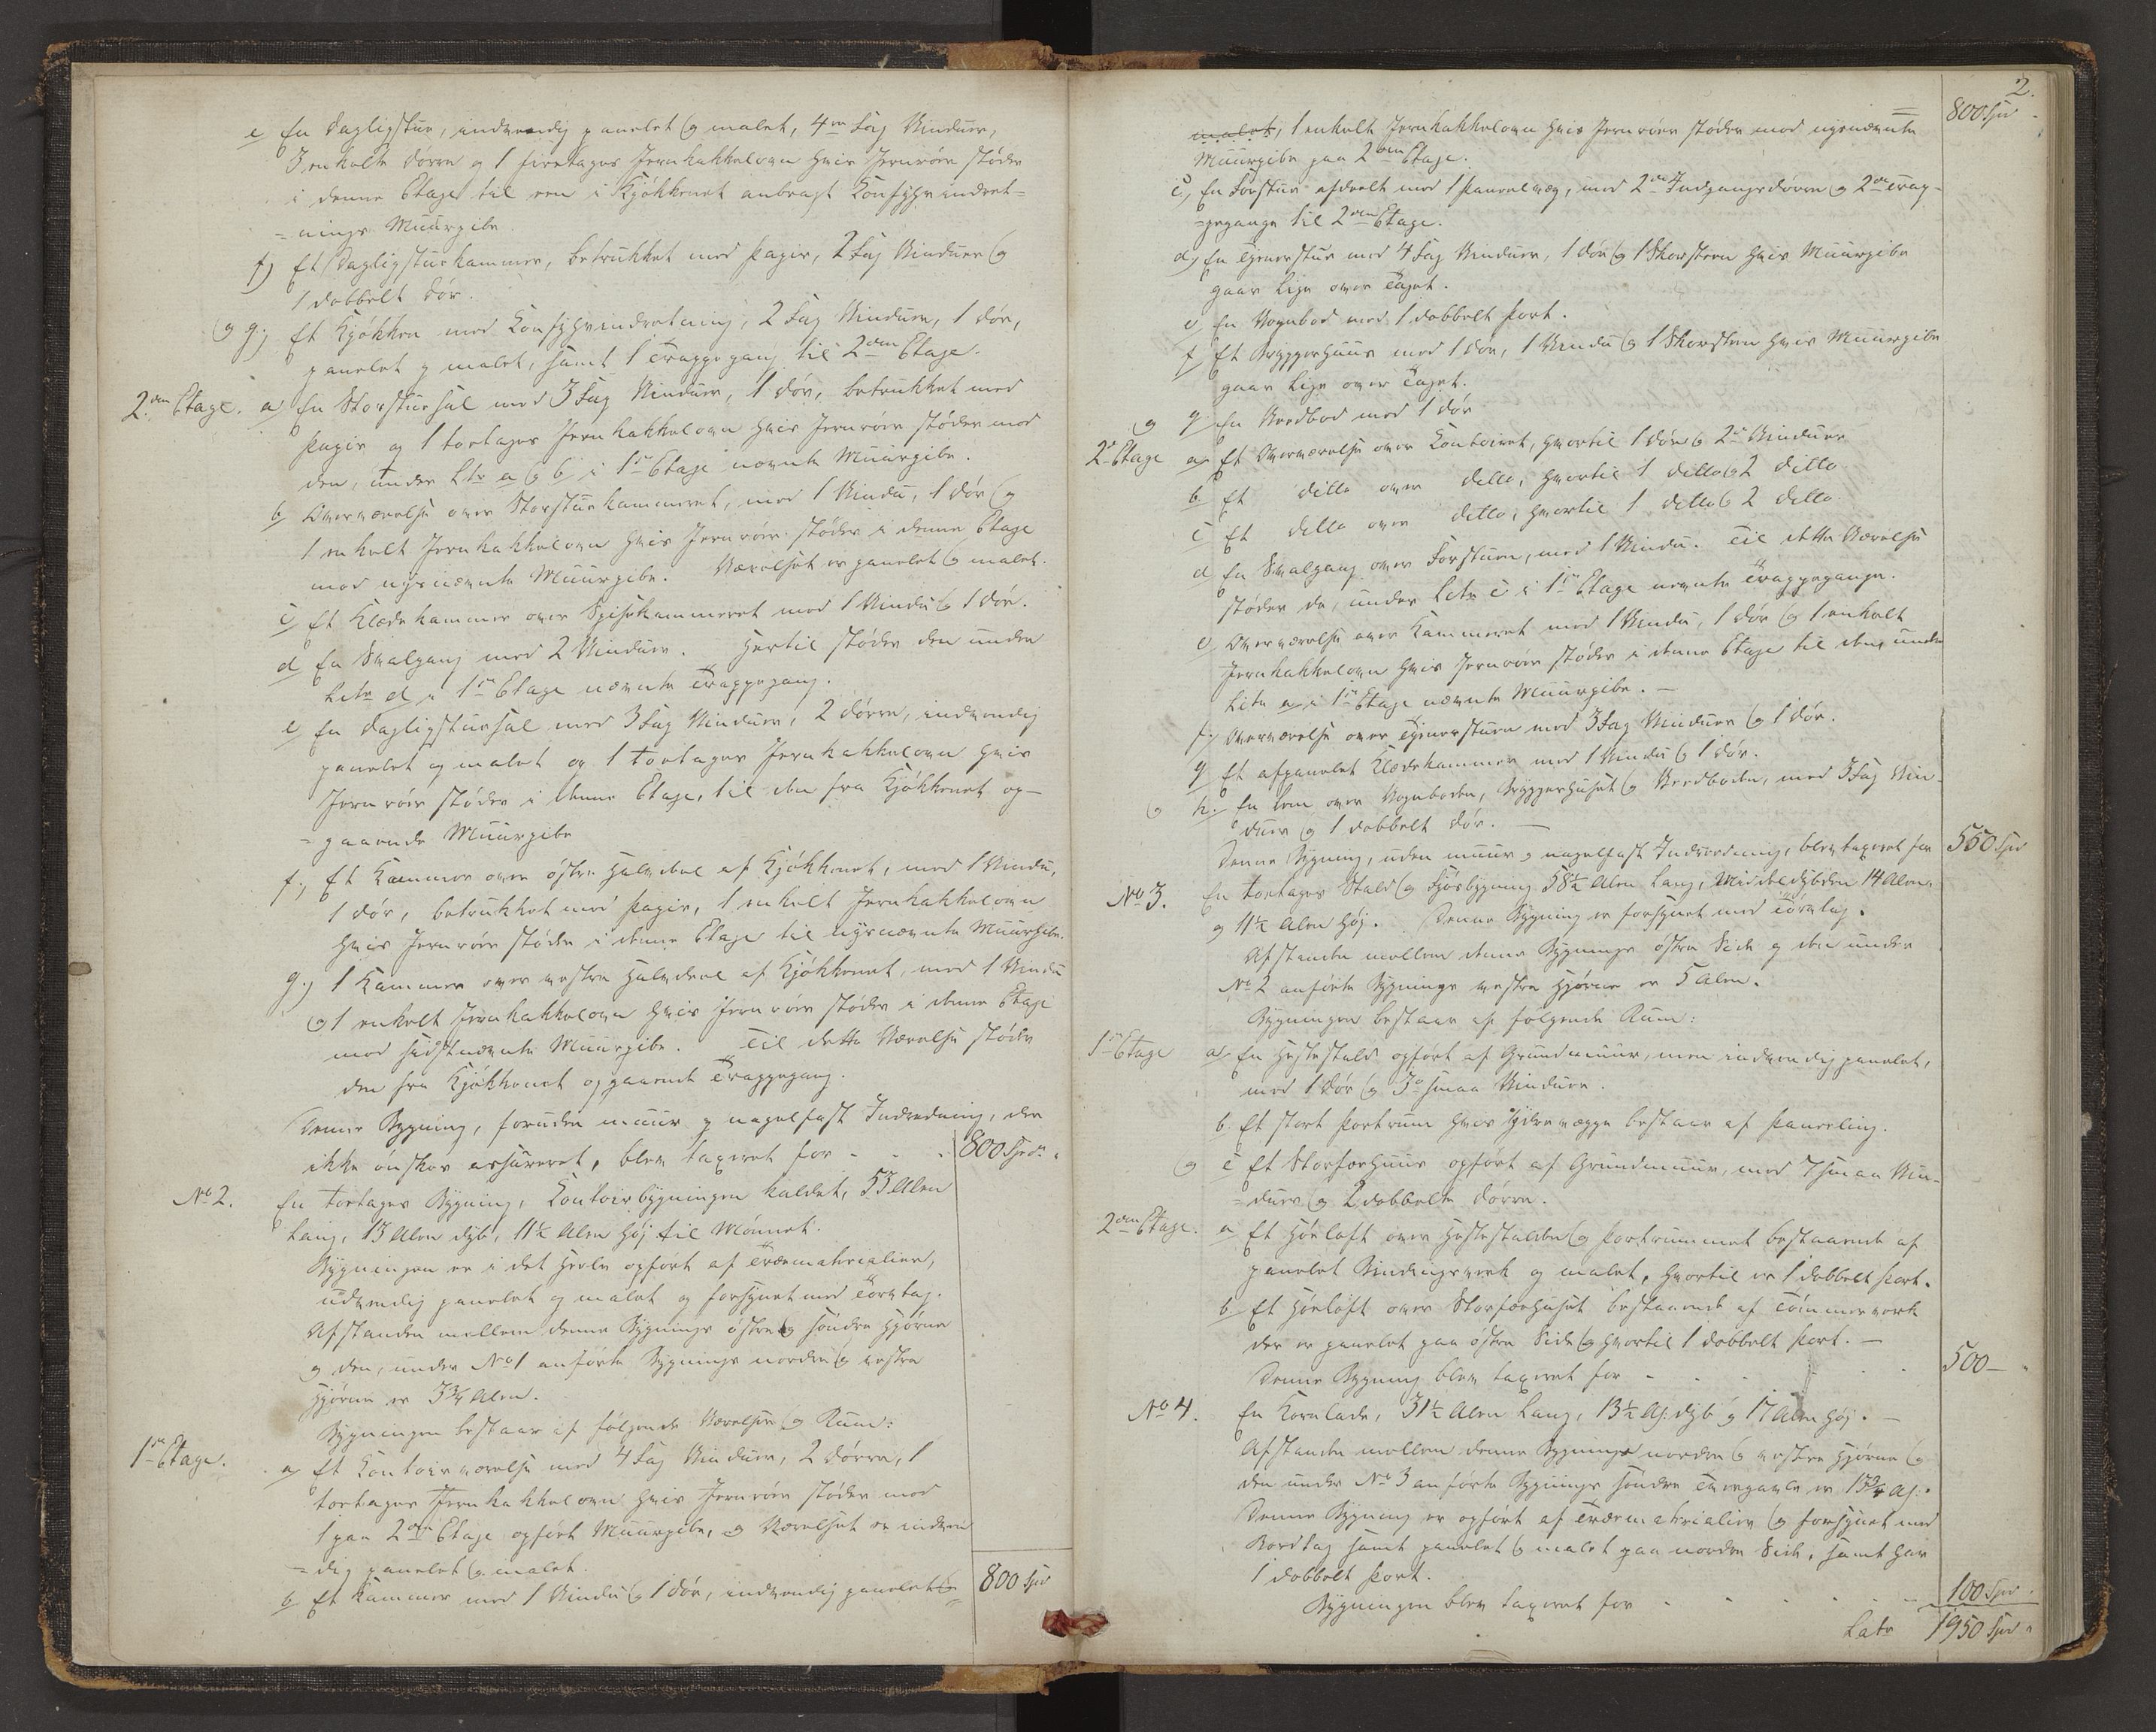 e En Dagligstue, indvendig panelet og malet, 4re Fag Vinduer,
3 enkelte Dørre og 1 firetages Jernkakkelovn hvis Jernrörer støder
i denne Etage til een i Kjøkkenet anbragt Comfyrindret=
=nings Muurpibe
f) Et Dagligstuekammer, betrukket med Papir, 2 Fag Vinduer og
1 dobbelt Dør.
og g.) Et Kjøkken med Comfyrindretning, 2 Fag Vinduer, 1 Dør,
panelet og malet, samt 1 Trappegang til 2den Etage.
2.den Etage. a/ En Storstuesal med 3 Fag Vinduer, 1 Dør, betrukket med
Papir og 1 toetages Jernkakkelovn hvis Jernrör støder mod
den, under Ltr a og b i 1ste Etage nævnte Muurpibe.
b/ Overværelse over Storstuekammeret, med 1 Vindu, 1 Dør og
1 enkelt Jernkakkelovn hvis Jernrör støder i denne Etage
mod nysnævnte Muurpibe. Værelset er panelet og malet.
c/ Et Klædekammer over Spisekammeret med 1 Vindu og 1 Dør.
d/ En Svalgang med 2 Vinduer. Hertil støder den under
Litr d i 1ste Etage nævnte Trappegang.
e/ En Dagligstuesal med 3 Fag Vinduer, 2 Dørre, indvendig
panelet og malet og 1 toetages Jernkakkelovn hvis
Jernrör støder i denne Etage, til den fra Kjøkkenet op-
=gaaende Muurpibe
f.) Et Kammer over østre Halvdeel af Kjøkkenet, med 1 Vindu,
1 Dør, betrukket med Papir, 1 enkelt Jernkakkelovn
hvis Jernrör støder i denne Etage til nysnævnte Muurpibe.
g.) 1 Kammer over vestre Halvdeel af Kjøkkenet, med 1 Vindu
og 1 enkelt Jernkakkelovn hvis Jernrör støder i denne Etage
mod sidstnævnte Muurpibe. Til dette Værelse støder
den fra Kjøkkenet opgaaende Trappegang.
Denne Bygning, foruden muur og nagelfast Indredning, der
ikke ønskes assureret, blev taxeret for - - - 800 Spd.
No 2. En toetages Bygning, Contoirbygningen kaldet, 53 Alen
lang, 13 Alen dyb, 11½ Alen høj til Mønnet.
Bygningen er i det Heele opført af Træematerialier,
udvendig panelet og malet og forsynet med Torvtag.
Afstanden mellem denne Bygnings østre og søndre Hjørne
og den, under No 1 anførte Bygnings nordre og vestre
Hjørne er 3¾ Alen.
Bygningen bestaar af følgende Værelser og Rum:
1ste Etage. a/ Et Contoirværelse med 4 Fag Vinduer, 2 Dørre, 1
toetages Jernkakkelovn hvis Jernrör støder mod
1 paa 2den Etage opført Muurpibe, og Værelset er indven
=dig panelet og malet.
b/ Et Kammer med 1 Vindu og 1 Dør, indvendig panelet og
800 Spd
2.
malet, 1 enkelt Jernkakkelovn hvis Jernrörer støder mod nysnævnte 800 Spd
Muurpibe paa 2den Etage.
c/ En Forstue afdeelt med 1 Panelvæg, med 2de Indgangsdørre og 2de Trap-
=pegange til 2den Etage.
d/ En Tjenerstue med 4 Fag Vinduer, 1 Dør og 1 Skorsteen hvis Muurpibe
gaar lige over Taget.
e/ En Vognbod med 1 dobbelt Port.
f/ Et Bryggerhuus med 1 Dør, 1 Vindu og 1 Skorsteen hvis Muurpibe
gaar lige over Taget.
og g En Vedbod med 1 Dør
2de Etage a/ Et Overværelse over Contoiret, hvortil 1 Dør og 2de Vinduer
b/ Et ditto over ditto, hvortil 1 ditto og 2 ditto
c Et ditto over ditto, hvortil 1 ditto og 2 ditto.
d En Svalgang over Forstuen, med 1 Vindu. Til dette Værelse
støder de, under Litr c i 1ste Etage nævnte Trappegange.
e/ Overværelse over Kammeret med 1 Vindu, 1 Dør og 1 enkelt
Jernkakkelovn hvis Jernrör støder i denne Etage til den, under
Litr a i 1ste Etage nævnte Muurpibe. -
f.) Overværelse over Tjenerstuen med 3 Fag Vinduer og 1 Dør.
g/ Et afpanelet Klædekammer med 1 Vindu og 1 Dør.
og h. En Lem over Vognboden, Bryggerhuset og Vedboden, med 3 Fag Vin-
duer og 1 dobbelt Dør. -
Denne Bygning, uden muur og nagelfast Indredning, blev taxeret for 550 Spd
No 3. En toetages Stald og Fjøsbygning 58½ Alen lang, Middeldybden 14 Alen,
og 11½ Alen høj. Denne Bygning er forsynet med Torvtag.
Afstanden mellem denne Bygnings østre Side og den under
No 2 anførte Bygnings vestre Hjørne er 5 Alen.
Bygningen bestaar af følgende Rum:
1ste Etage a/ En Hestestald opført af Grundmuur, men indvendig panelet,
med 1 Dør og 3 smaa Vinduer.
b. Et stort Portrum hvis Ydrevægge bestaar af Paneeling.
og c Et Storfæehuus opført af Grundmuur, med 7 smaa Vin-
=duer og 2 dobbelte Dørre.
2den Etage. a Et Høeloft over Hestestalden og Portrummet bestaaende af
panelet Bindingsverk og malet, hvortil er 1 dobbelt Port.
b. Et Høeloft over Storfæehuset bestaaende af Tømmerverk
der er panelet paa østre Side og hvortil 1 dobbelt Port. -
Denne Bygning blev taxeret for - - - 500 -
No 4. En Kornlade, 31½ Alen lang, 13½ Al: dyb og 17 Alen høj. -
Afstanden mellem denne Bygnings nordre og vestre Hjørne og
den under No 3 anførte Bygnings søndre er 13¾ Al:.
Denne Bygning er opført af Træematerialier og forsynet med
Bordtag samt panelet og malet paa nordre Side, samt har
1 dobbelt Port.
Bygningen blev taxeret for - - - 100 Spd.
Latr 1950 Spd.